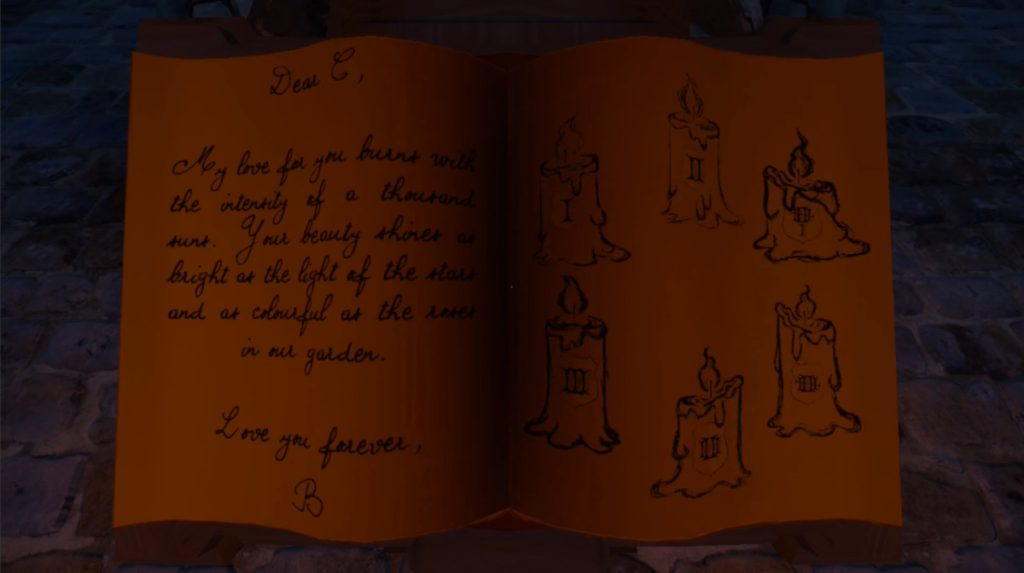 Dear C,
My love for you burns with
the intensity of a thousand
suns. Your beauty shines as
bright as the light of the stars
and as colourful as the roses
in our garden.
Love you forever,
B
I
II
III